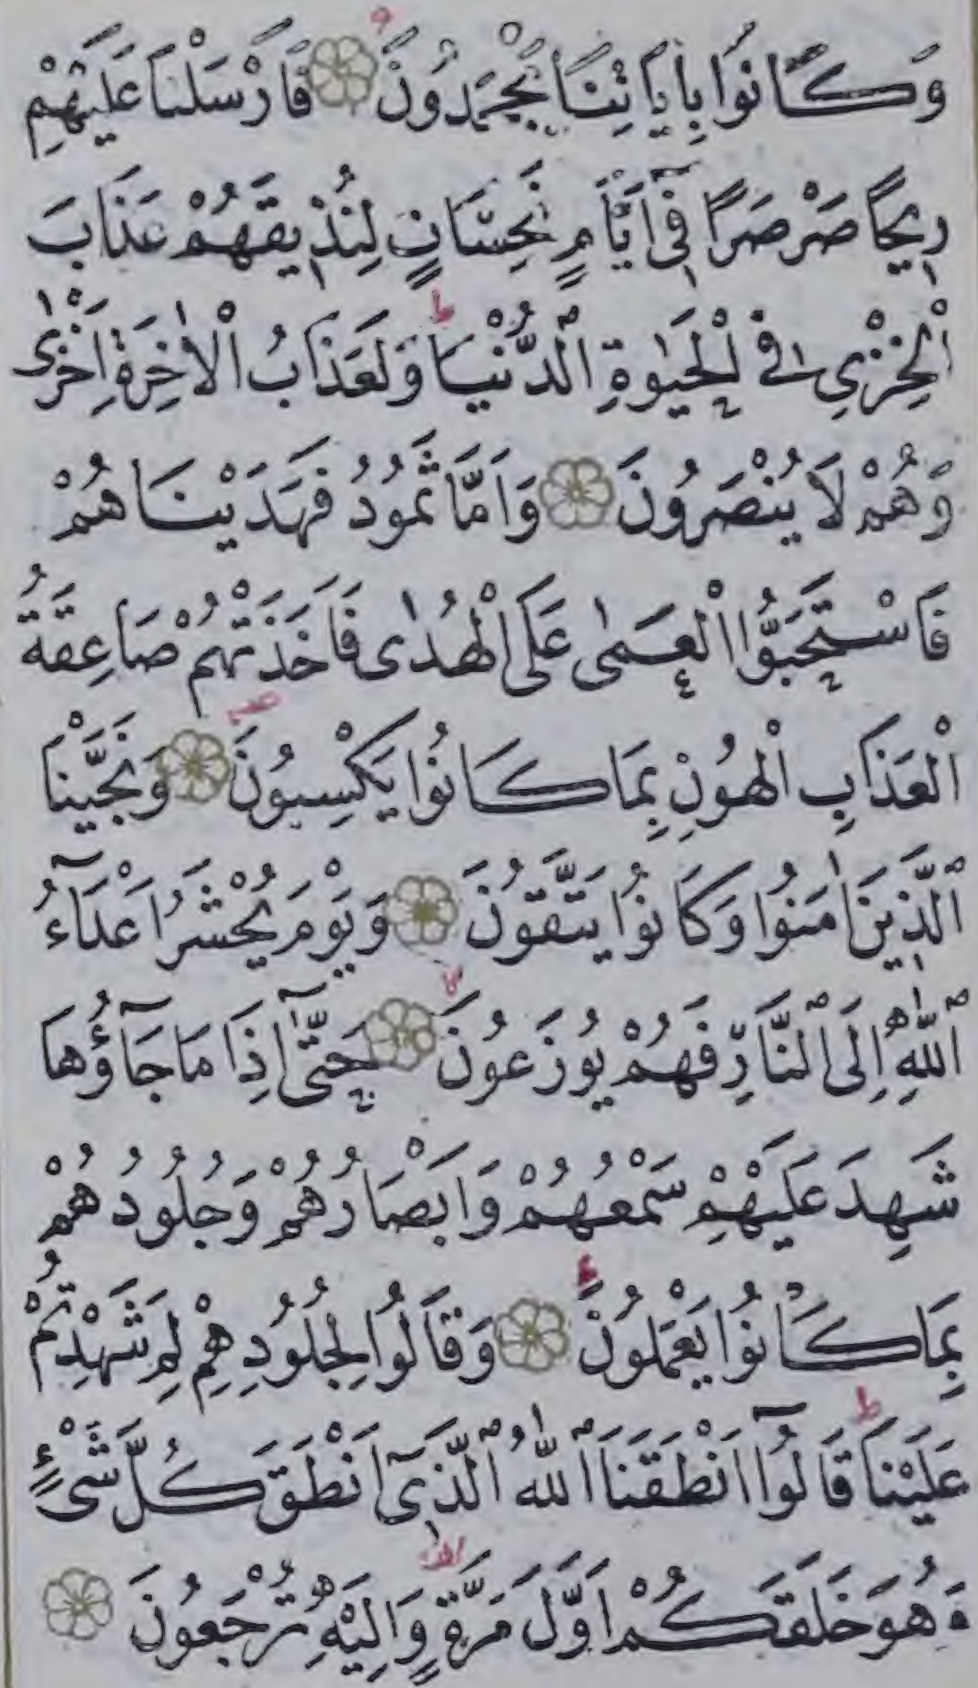 وَكَانُوا بِاٰيَاتِنَا يَجْحَدُونَ ۝ فَاَرْسَلْنَا عَلَيْهِمْ
رِيحًا صَرْصَرًا فِى اَيَّامٍ نَحِسَاتٍ لِنُذِيقَهُمْ عَذَابَ
الْخِزْىِ فِى الْحَيٰوةِ الدُّنْيَا ط وَلَعَذَابُ الْاٰخِرَةِ اَخْزٰى
وَهُمْ لَا يُنْصَرُونَ ۝ وَاَمَّا ثَمُودُ فَهَدَيْنَاهُمْ
فَاسْتَحَبُّوا الْعَمٰى عَلَى الْهُدٰى فَاَخَذَتْهُمْ صَاعِقَةُ
الْعَذَابِ الْهُونِ بِمَا كَانُوا يَكْسِبُونَ ۝ وَنَجَّيْنَا
الَّذِينَ اٰمَنُوا وَكَانُوا يَتَّقُونَ ۝ وَيَوْمَ يُحْشَرُ اَعْدَٓاءُ
اللّٰهِ اِلَى النَّارِ فَهُمْ يُوزَعُونَ لا ۝ حَتّٰٓى اِذَا مَا جَٓاؤُهَا
شَهِدَ عَلَيْهِمْ سَمْعُهُمْ وَاَبْصَارُهُمْ وَجُلُودُهُمْ
بِمَا كَانُوا يَعْمَلُونَ ۝ وَقَالُوا لِجُلُودِهِمْ لِمَ شَهِدْتُمْ
عَلَيْنَا ط قَالُٓوا اَنْطَقَنَا اللّٰهُ الَّذِٓى اَنْطَقَ كُلَّ شَىْءٍ
وَهُوَ خَلَقَكُمْ اَوَّلَ مَرَّةٍ وَاِلَيْهِ تُرْجَعُونَ ۝